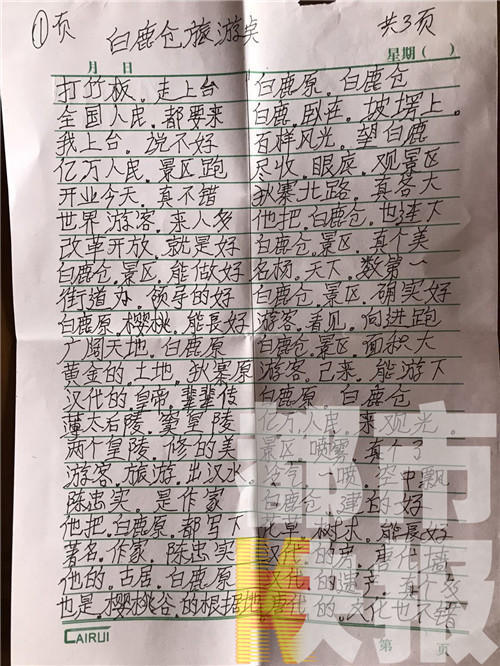 ①页 白鹿仓旅游点 共3页
月 日 星期( )
打竹板。走上台 白鹿原。白鹿仓
全国人民。都要来 白鹿。卧在。坡塄上。
我上台。说不好 百样风光。望白鹿
亿万人民。景区跑 尽收。眼底。观景区
开业今天。真不错 狄寨北路。真容大
世界游客。来人多 他把。白鹿仓。也连下
改革开放。就是好 白鹿仓。景区。真个美
白鹿仓。景区。能做好 名杨。天下。数第一
街道办。领导的好 白鹿仓。景区。确实好
白鹿原。樱桃。能長好 游客。看见。向进跑
广阔天地。白鹿原 白鹿仓。景区。面积大
黄金的。土地。狄寨原 游客。己来。能游下
汉代的。皇帝。辈辈传 白鹿原 白鹿仓
薄太后陵。窦皇陵 亿万。人民。来观光。
两个皇陵。修的美 景区。喷雾。真个了
游客。旅游。出汉水 冷气。一喷。空中飘
陈忠实。是作家 白鹿仓。建的好
他把。白鹿原。都写下 花草。树木。能長好
著名。作家。陈忠实 汉代。的房。唐代墙
他的。古居。白鹿原 汉代。的遗产。真个多
也是。樱桃谷。的根据地 唐代。的。文化也不错
CAIRUI 第 页
都市
快报